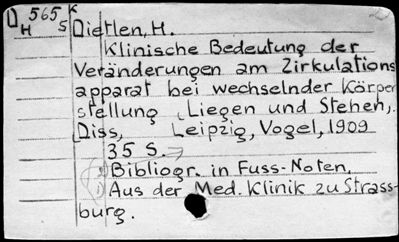 D 565 K
H S Dietlen, H.
Klinische Bedeutung der
Veränderungen am Zirkulations
apparat bei wechselnder Körper
stellung (Liegen und Stehen).
Diss. Leipzig, Vogel, 1909
35 S.
Bibliogr. in Fuss-Noten.
Aus der Med. Klinik zu Strass-
burg.